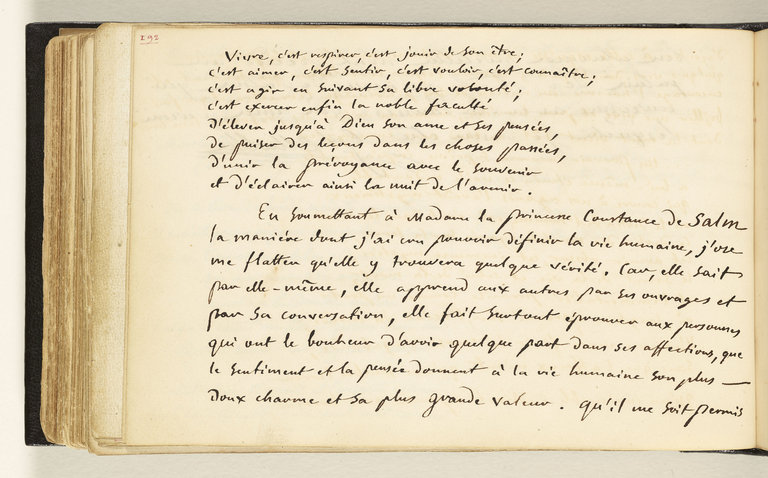 192
Vivre, c'est respirer, c'est jouir de son être;
c'est aimer, c'est sentir, c'est vouloir, c'est connaître;
c'est agir en suivant sa libre volonté;
c'est exercer enfin la noble faculté
d'élever jusqu'à Dieu son ame et ses pensées,
de puiser des leçons dans les choses passées,
d'unir la prévoyance avec le souvenir
et d'éclairer ainsi la nuit de l'avenir.
En soumettant à Madame la princesse Constance de Salm
la manière dont j'ai cru pouvoir définir la vie humaine, j'ose
me flatter qu'elle y trouvera quelque vérité. Car, elle sait
par elle-même, elle apprend aux autres par ses ouvrages et
par sa conversation, elle fait surtout éprouver aux personnes
qui ont le bonheur d'avoir quelque part dans ses affections, que
le sentiment et la pensée donnent à la vie humaine son plus
doux charme et sa plus grande valeur. qu'il me soit permis